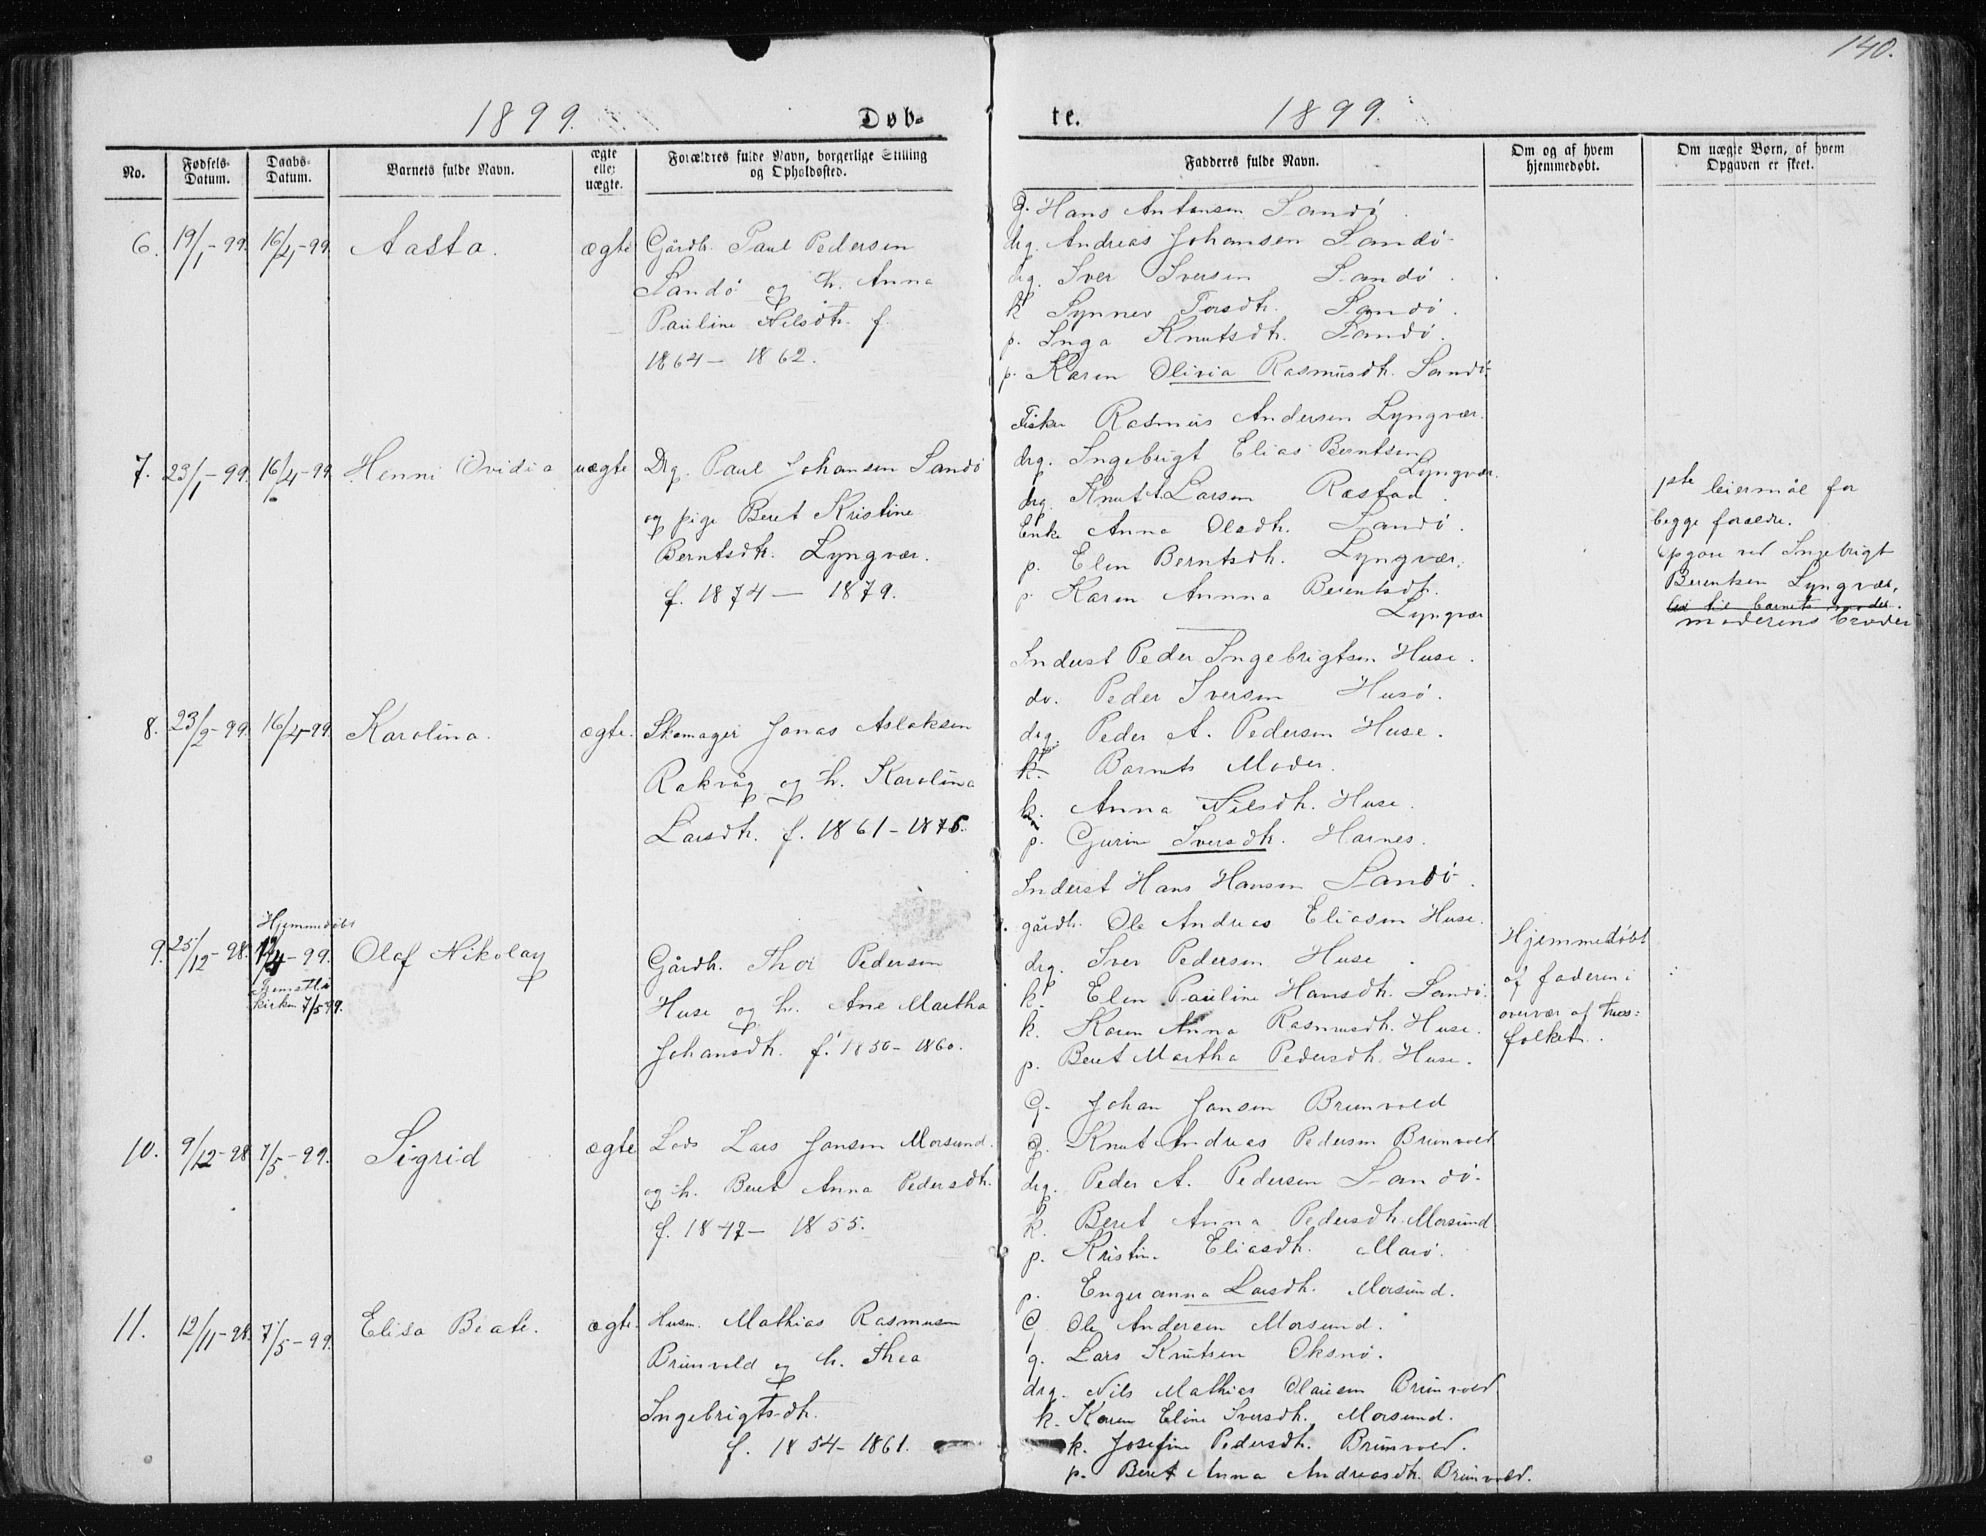 140.
1899.
Døb-
te.
1899.
No.
Fødsels-
Datum.
Daabs-
Datum.
Barnets fulde Navn.
ægte
eller
uægte.
Forældres fulde Navn, borgerlige Stilling
og Opholdssted.
Fadderes fulde Navn.
Om og af hvem
hjemmedøbt.
Om uægte Børn, af hvem
Opgaven er skeet.
6. 19/1-99. 16/4-99. Aasta. ægte
Gårdb. Paul Pedersen
Sandø og h. Anna
Pauline Nilsdtr. f.
1864 – 1862.
G. Hans Antonsen Sandø.
drg. Andreas Johansen Sandø
drg. Iver Iversen Sandø.
k Synnev Torsdtr. Sandø.
p. Inga Knutsdtr. Sandø.
p. Karen Olivia Rasmusdtr. Sandø.
7. 23/1-99. 16/4-99. Henni Ovidia uægte
Drg. Paul Johansen Sandø
og pige Beret Kristine
Berntsdtr. Lyngvær.
f. 1874 – 1879.
Fisker Rasmus Andersen Lyngvær.
drg. Ingebrigt Elias Berntsen
Lyngvær.
drg. Knut L Larsen Røstad.
Enke Anna Olsdtr. Sandø.
p. Elen Berntsdtr. Lyngvær.
p. Karen Annna Berentsdtr.
Lyngvær
1ste leiermål for
begge forældre.
Opgave ved Ingebrigt
Berentsen Lyngvær,
moderens broder
8. 23/2-99. 16/4-99. Karolina. ægte.
Skomager Jonas Aslaksen
Rakvåg og h. Karolina
Larsdtr. f. 1861-1875.
Inderst Peder Ingebrigtsen Huse.
do. Peder Iversen Husø.
drg. Peder A. Pedersen Huse.
k. Barnets Moder.
k. Anna Nilsdtr. Huse.
p. Gurine Iversdtr. Harnes.
9. 25/12-98. Hjemmedøbt
/4-99. Olaf Nikolay
kirken 7/5 99.
Gårdb. Thor Pedersen
Huse og h. Ane Martha
Johansdtr. f. 1850-1860.
Inderst Hans Hansen Sandø.
gårdb. Ole Andreas Eliasen Huse.
drg. Iver Pedersen Huse.
k. Elen Pauline Hansdtr. Sandø.
k. Karen Anna Rasmusdtr. Huse.
p. Beret Martha Pedersdtr. Huse.
Hjemmedøbt
af faderen i
overvær af Hus-
folket.
10. 9/12-98 7/5-99. Sigrid ægte
Lods Lars Jansen Morsund.
og h. Beret Anna Pedersdtr.
f. 1847 – 1855.
G. Johan Jansen Brunvold
g. Knut Andreas Pedersen Brunvold
drg. Peder A. Pedersen Sandø.
k. Beret Anna Pedersdtr. Morsund
p. Kristine Eliasdtr. Marø.
p. Engeranna Larsdtr. Morsund.
11. 12/11-98. 7/5-99. Elisa Beate. ægte.
Husm. Mathias Rasmusen
Brunvold og h. Thea
Ingebrigtsdtr.
f. 1854-1861.
G. Ole Andersen Morsund.
g. Lars Knutsen Oksnø.
drg. Nils Mathias Olausen Brunvold
k. Karen Eline Iversdtr. Morsund.
k. Josefine Pedersdtr. Brunvold.
p. Beret Anna Andreasdtr. Brunvold.